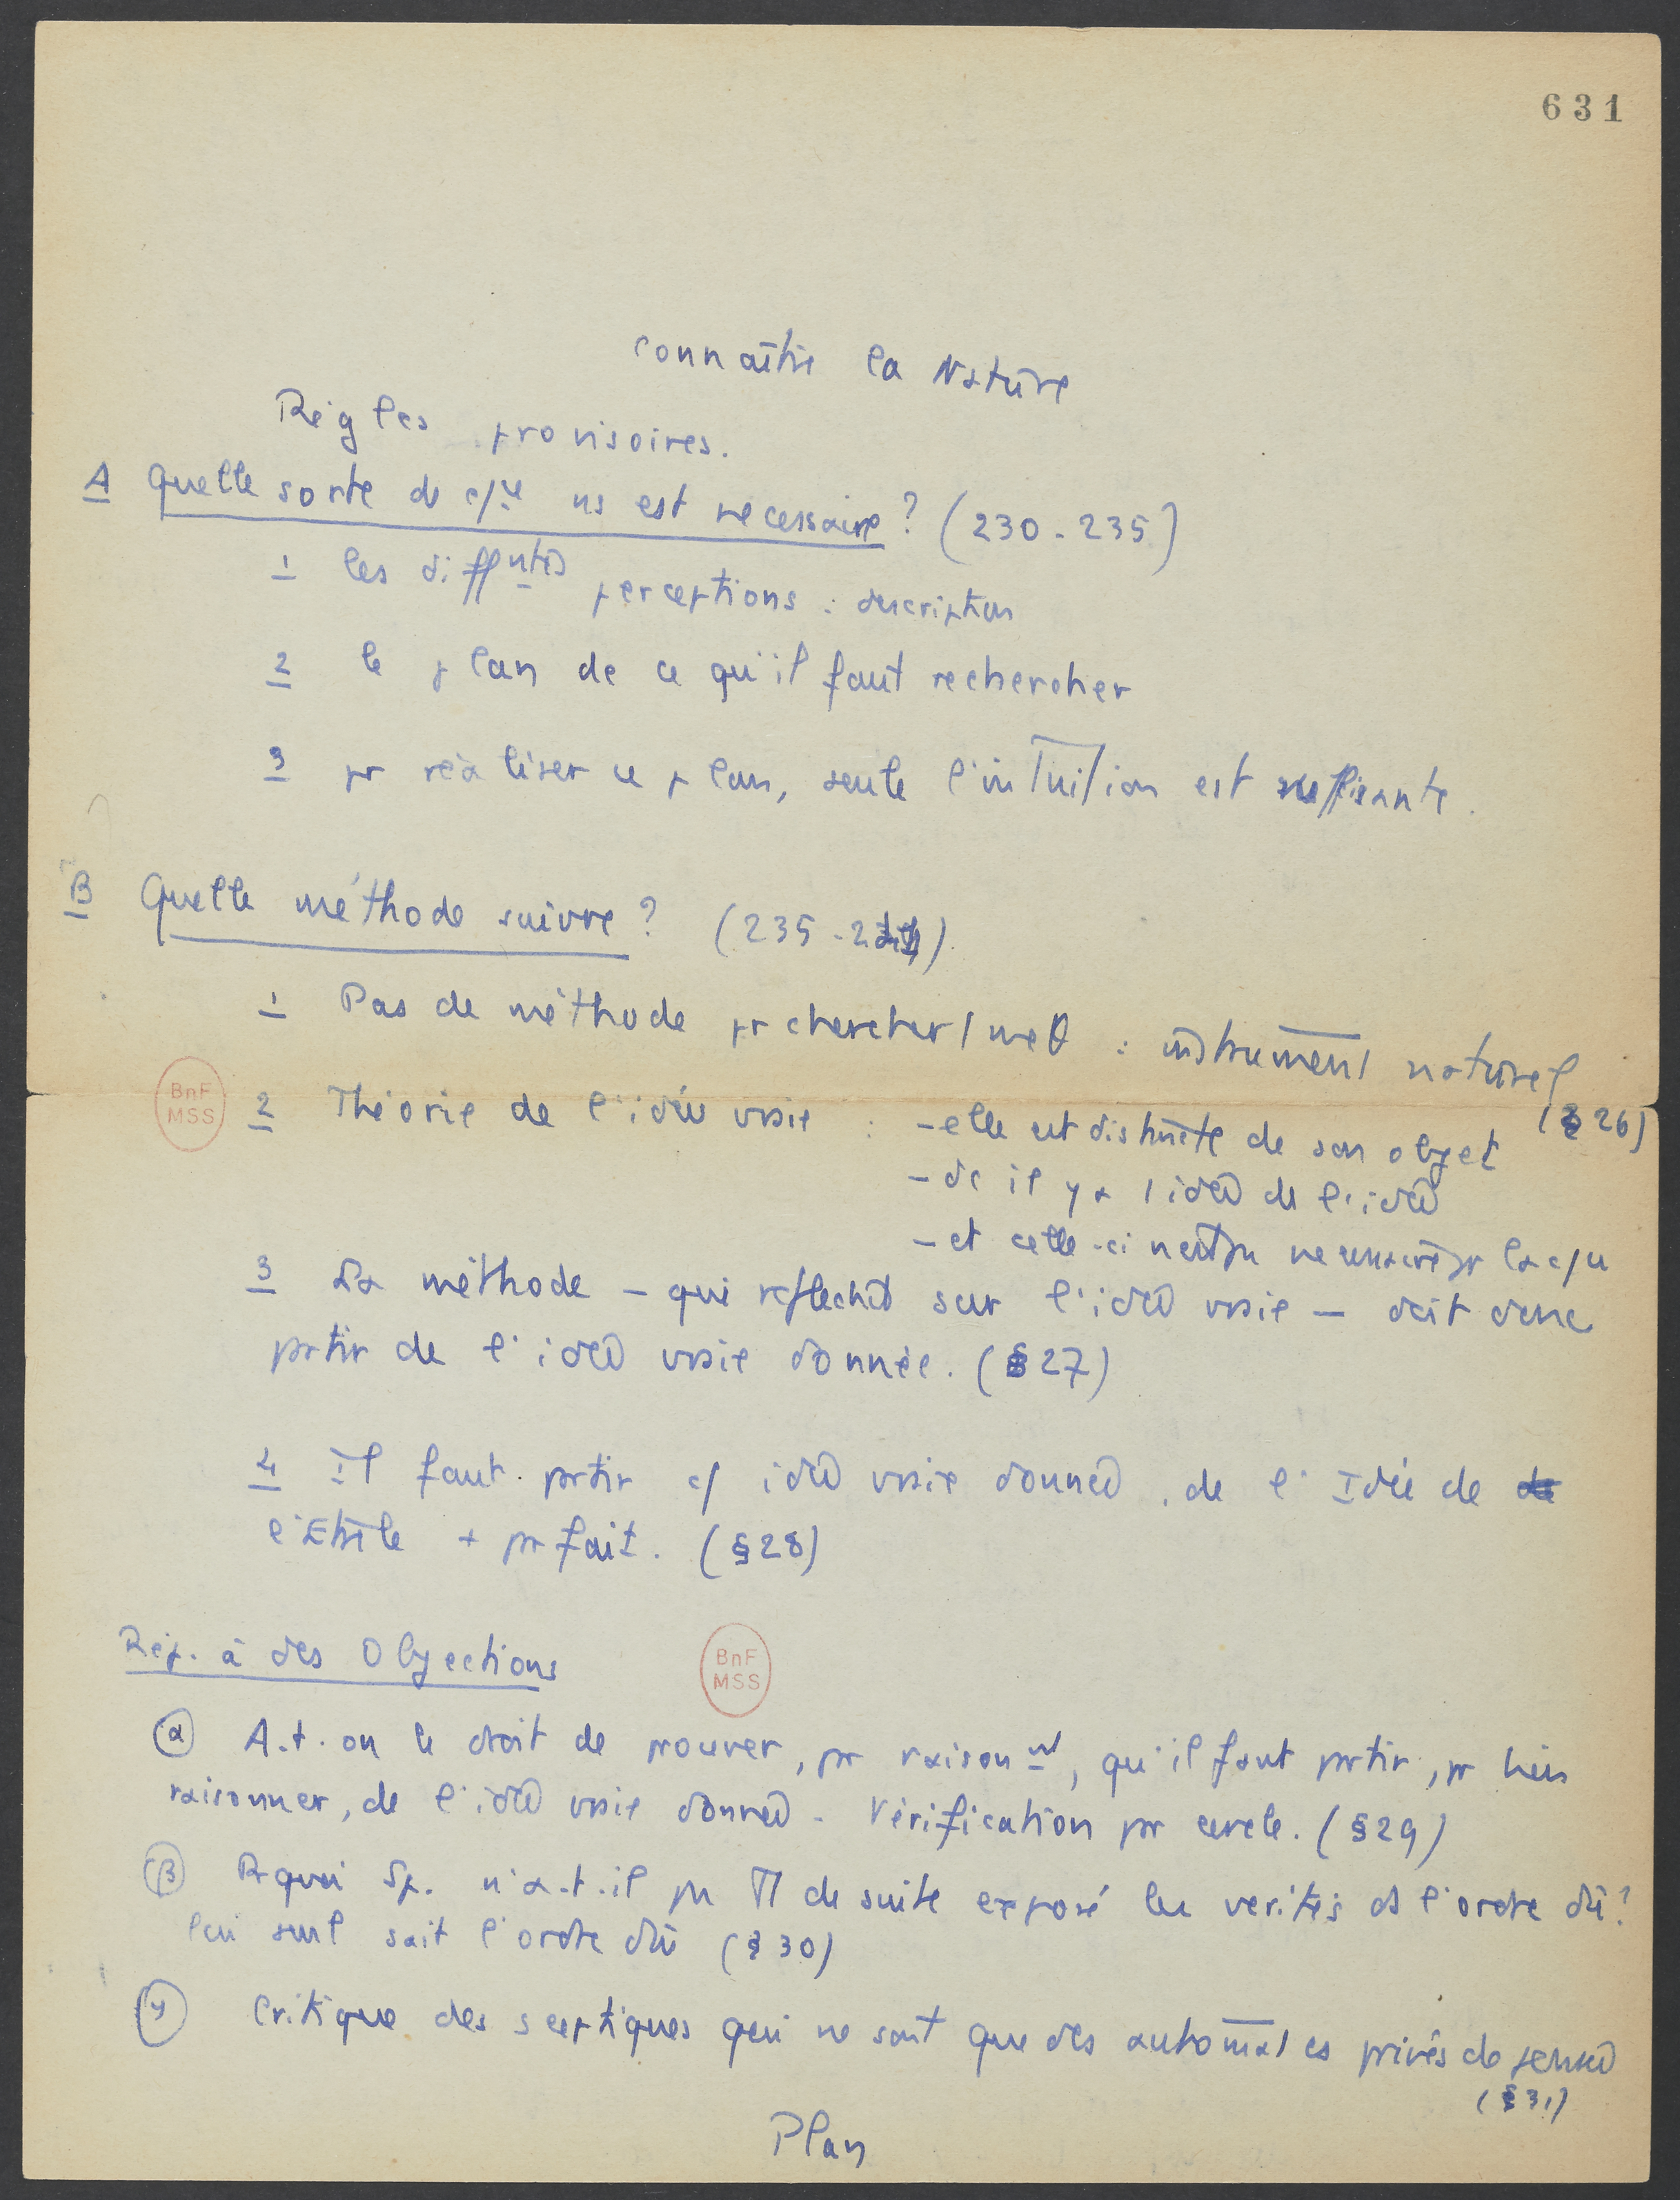 631
connaître la Nature
Règles provisoires.
A Quelle sorte de c/ce ns est necessaire ? (230-235)
1 les diffntes perceptions : description
2 le plan de ce qu'il faut rechercher
3 pr réaliser ce plan, seule l'intuition est suffisante.
B Quelle méthode suivre ? (235-2)
1 Pas de méthode pr chercher 1 meθ : instrument naturel
(§ 26)
BnF MSS
2 Théorie de l'idée vraie : - elle est distincte de son objet
- dc il y a 1 idée de l'idée
- et celle-ci n'est pas necessaire pr la c/ce
3 La méthode - qui reflechit sur l'idée vraie - doit donc
partir de l'idée vraie donnée. (§ 27)
4 Il faut partir c/ idée vraie donnée, de l'Idée de
l'Etre le + parfait. (§ 28)
Rép. à des Objections
BnF MSS
α A-t-on le droit de prouver, par raisonnt, qu'il faut partir, pr bien
raisonner, de l'idée vraie donnée - Vérification par cercle. (§ 29)
β Pquoi Sp. n'a-t-il pas TT de suite exposé les verités ds l'ordre dû ?
lui seul sait l'ordre dû (§ 30)
γ Critique des sceptiques qui ne sont que des automates privés de pensée
(§ 31)
Plan